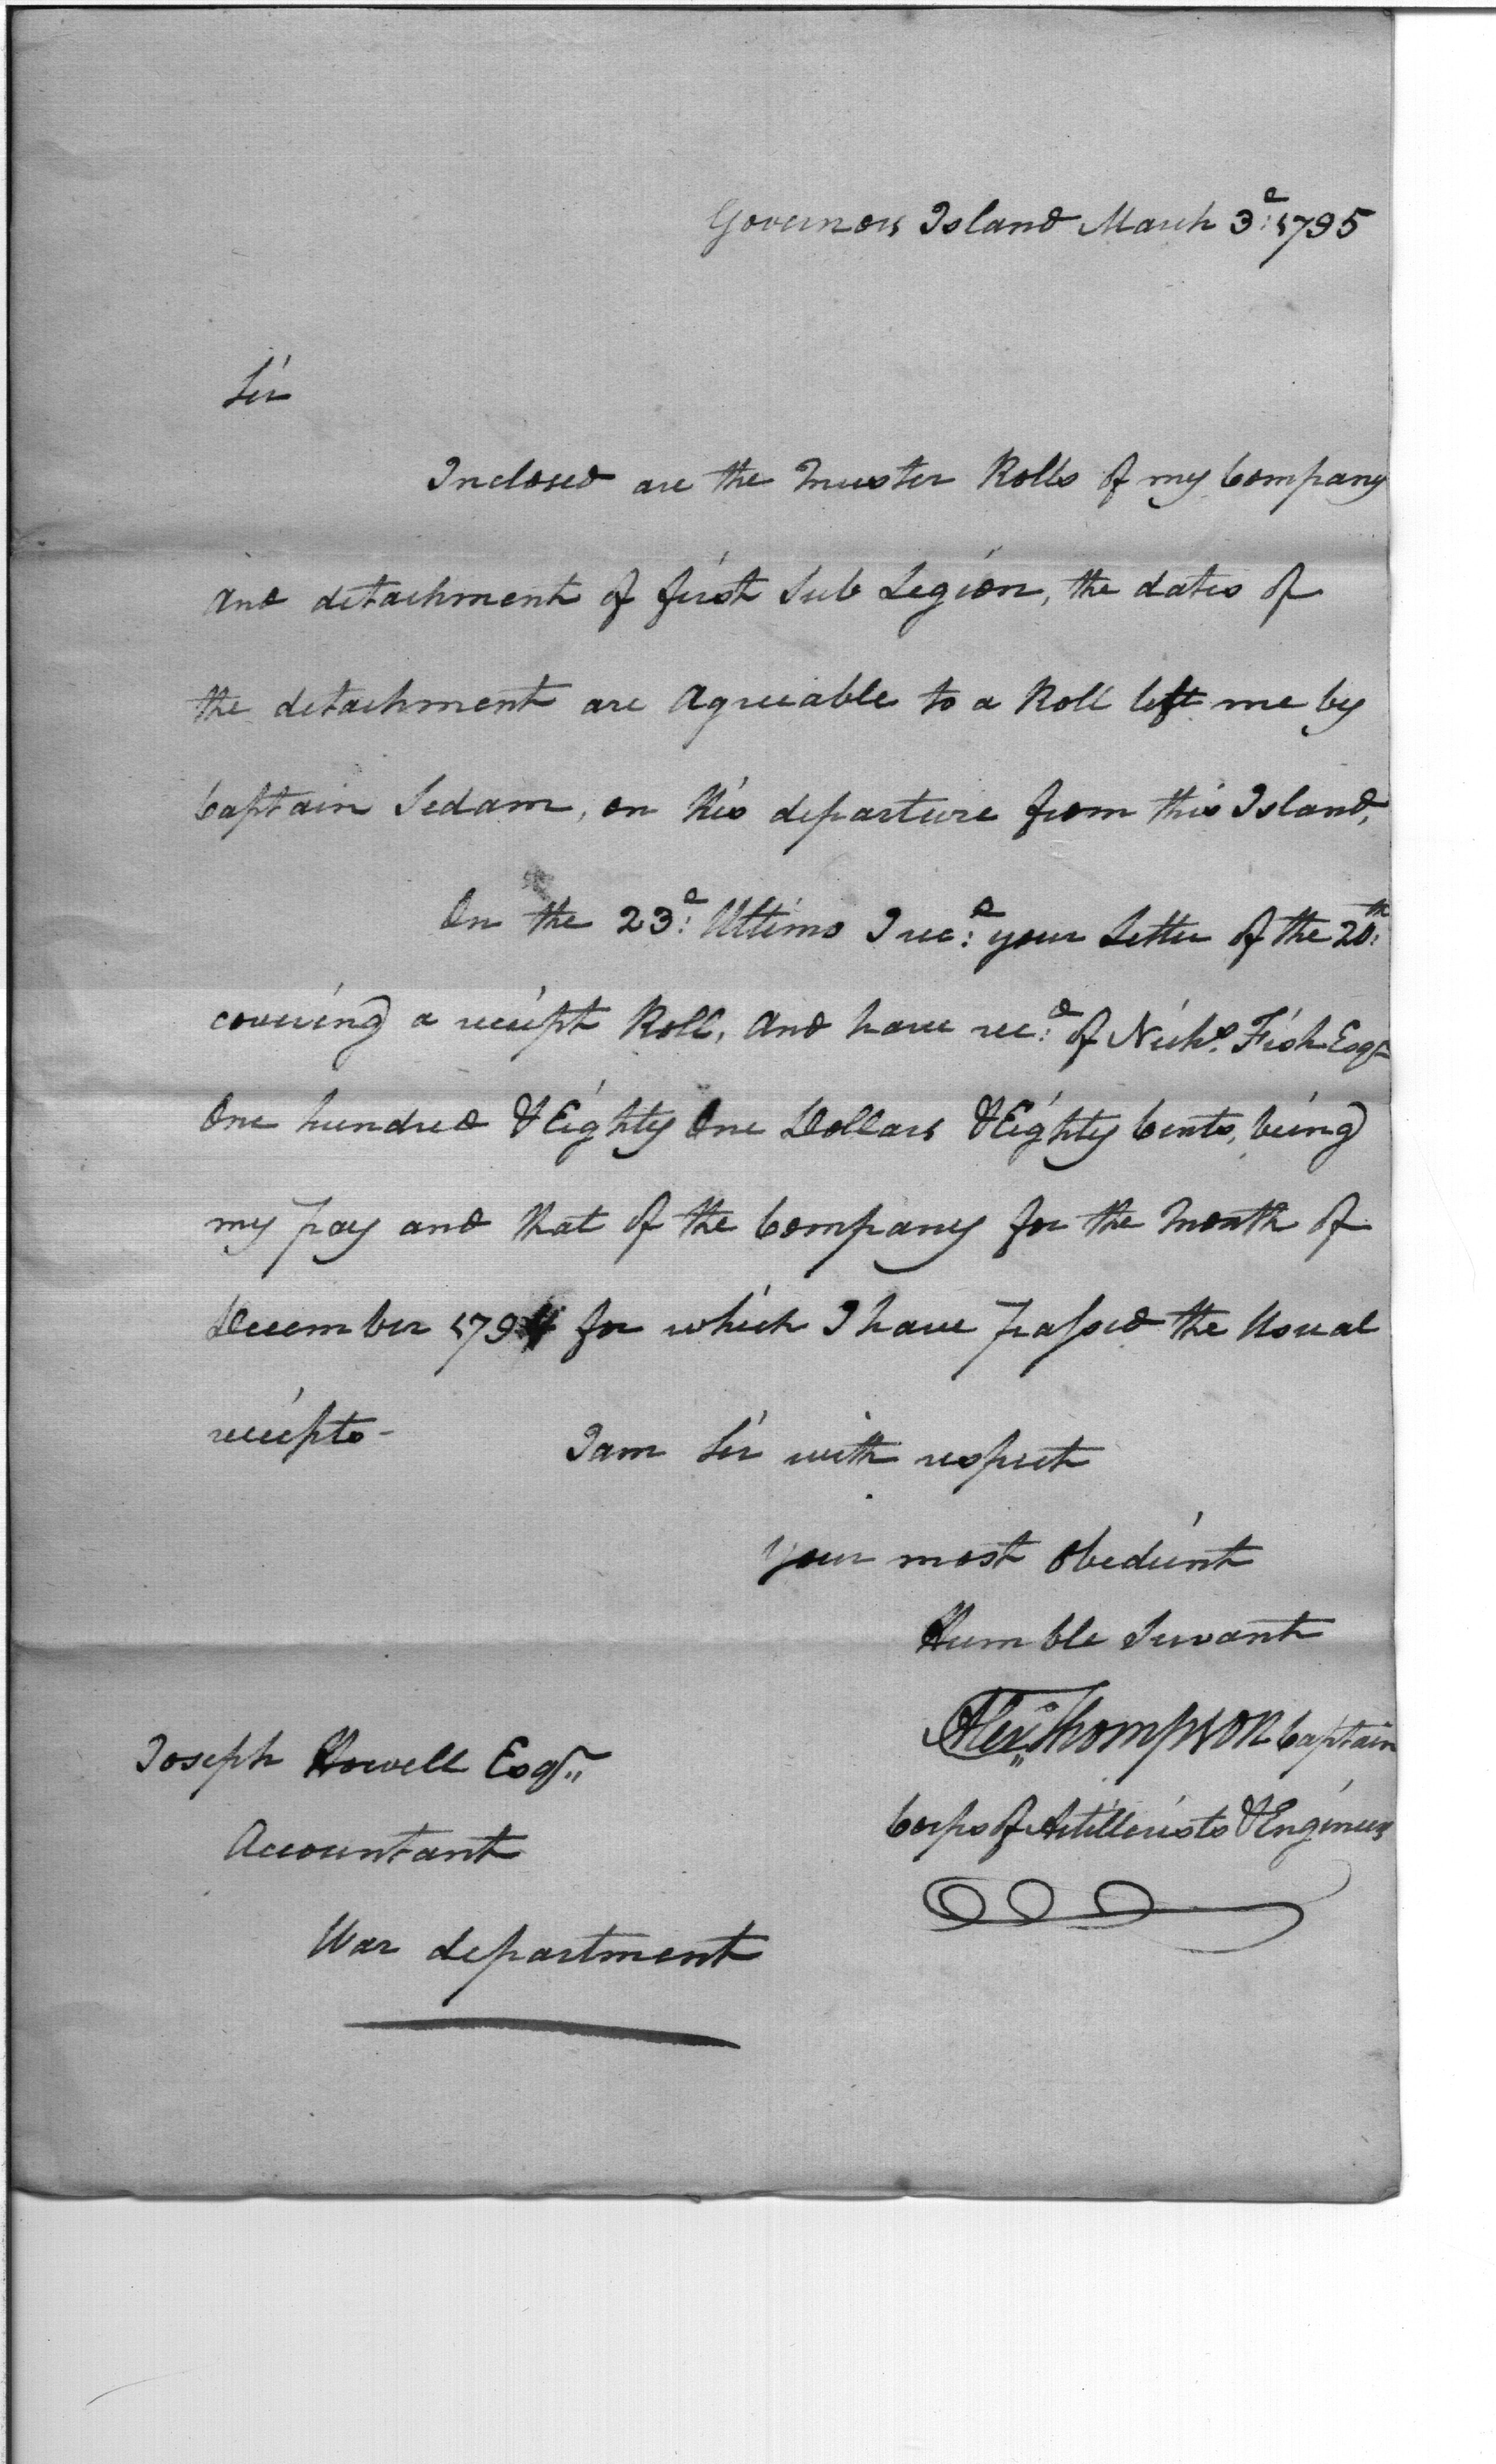 Governors Island March 3d: 1795
Sir
Inclosed are the muster Rolls of my Company
and detachment of first Sub Legion, the dates of
the detachment are agreeable to a Roll left me by
Captain Sedam, on his departure from this Island,
On the 23d: Ultimo I recd: your Letter of the 20th:
covering a receipt Roll, and have recd: of Nichs. Fish Esqr
One hundred & Eighty One Dollars & Eighty Cents, being
my pay and that of the Company for the month of
December 1794 for which I have passed the Usual
receipts-
I am Sir with respect
your most Obedient
Humble Servant
Alexr. Thompson Captain
Corps of Artillerists & Engineers
Joseph Howell Esqr.
Accountant
War department